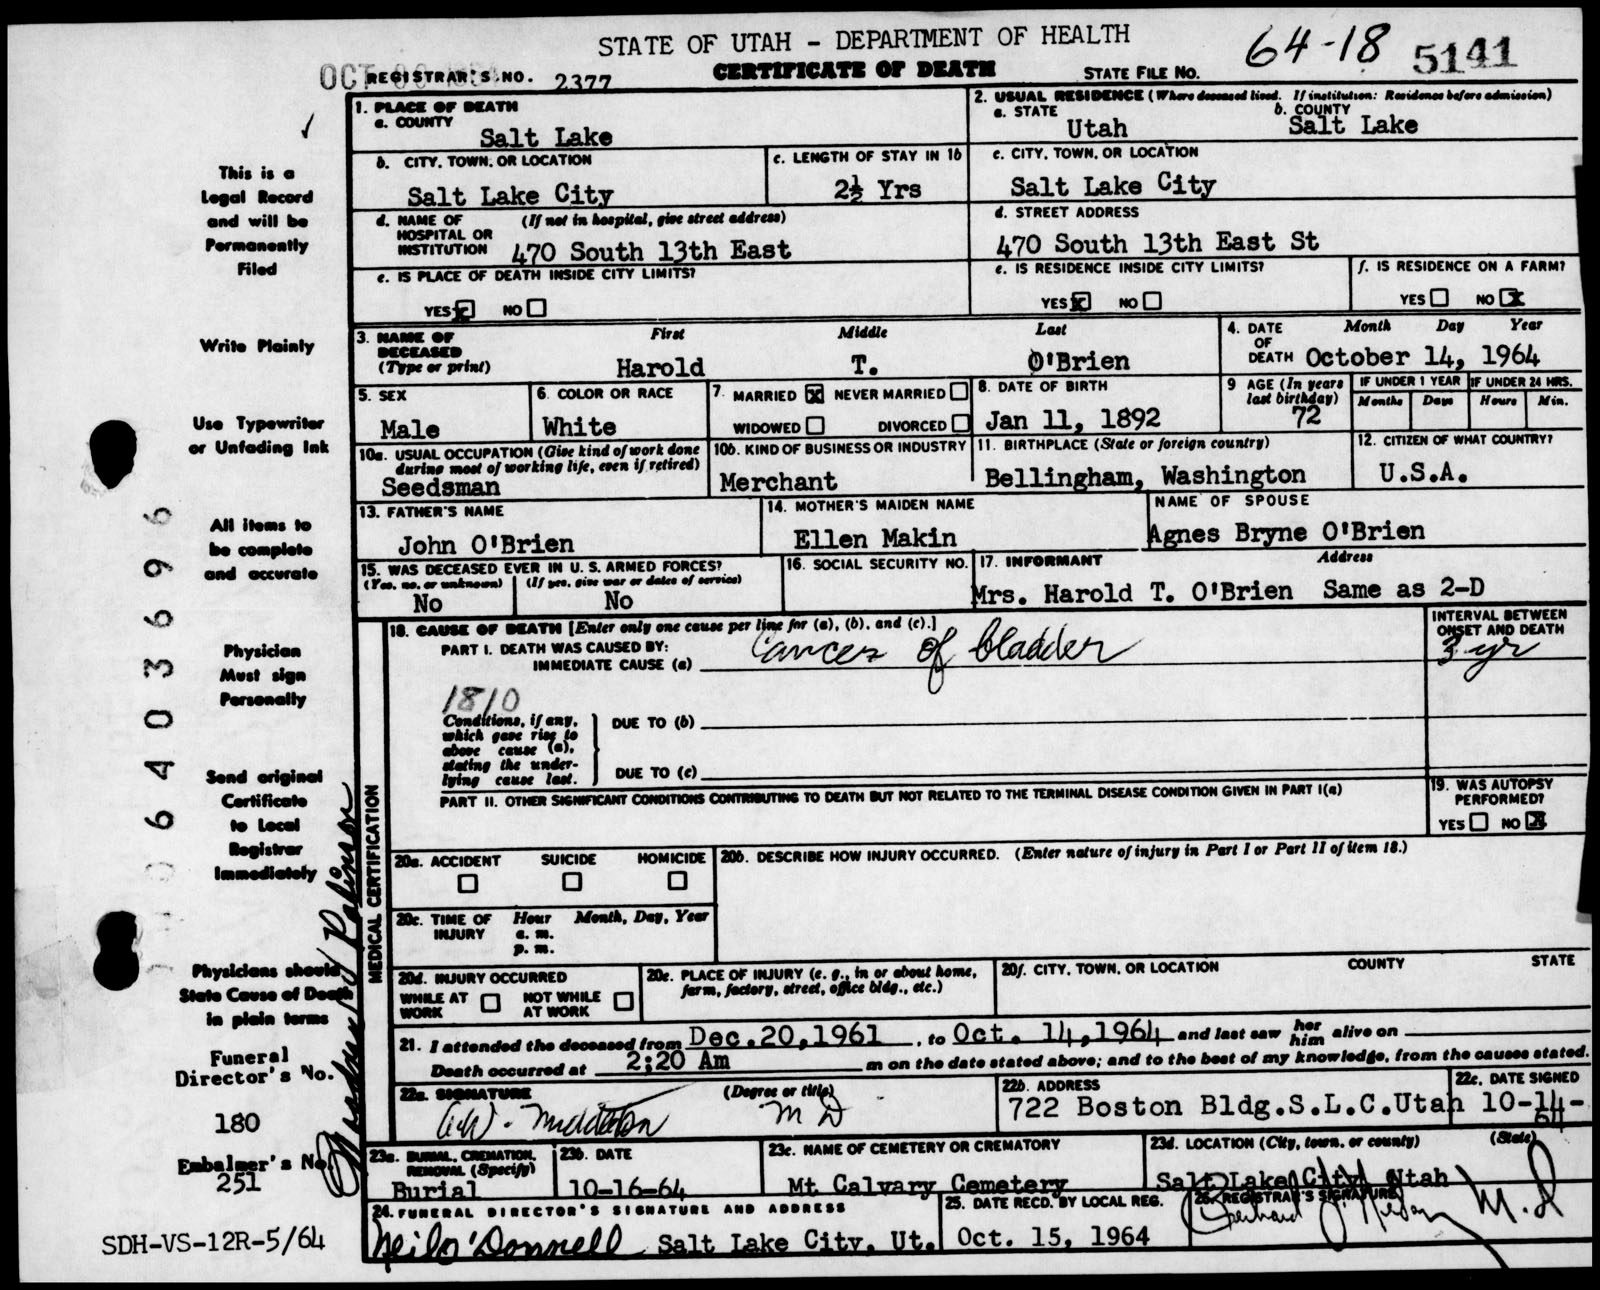 STATE OF UTAH - DEPARTMENT OF HEALTH
CERTIFICATE OF DEATH
OCT
REGISTRAR'S NO. 2377
STATE FILE NO. 64-18 5141
1. PLACE OF DEATH
a. COUNTY
Salt Lake
2. USUAL RESIDENCE (Where deceased lived. If institution: Residence before admission)
a. STATE
Utah
b. COUNTY
Salt Lake
b. CITY, TOWN, OR LOCATION
Salt Lake City
c. LENGTH OF STAY IN 1b
2½ Yrs
c. CITY, TOWN, OR LOCATION
Salt Lake City
d. NAME OF HOSPITAL OR INSTITUTION
(If not in hospital, give street address)
470 South 13th East
d. STREET ADDRESS
470 South 13th East St
e. IS PLACE OF DEATH INSIDE CITY LIMITS?
YES x NO
e. IS RESIDENCE INSIDE CITY LIMITS?
YES x NO
f. IS RESIDENCE ON A FARM?
YES NO x
3. NAME OF DECEASED
(Type or print)
First Middle Last
Harold T. O'Brien
4. DATE OF DEATH
Month Day Year
October 14, 1964
5. SEX
Male
6. COLOR OR RACE
White
7. MARRIED x NEVER MARRIED
WIDOWED DIVORCED
8. DATE OF BIRTH
Jan 11, 1892
9 AGE (In years last birthday)
72
IF UNDER 1 YEAR
Months Days
IF UNDER 24 HRS.
Hours Min.
10a. USUAL OCCUPATION (Give kind of work done during most of working life, even if retired)
Seedsman
10b. KIND OF BUSINESS OR INDUSTRY
Merchant
11. BIRTHPLACE (State or foreign country)
Bellingham, Washington
12. CITIZEN OF WHAT COUNTRY?
U.S.A.
13. FATHER'S NAME
John O'Brien
14. MOTHER'S MAIDEN NAME
Ellen Makin
NAME OF SPOUSE
Agnes Bryne O'Brien
15. WAS DECEASED EVER IN U. S. ARMED FORCES?
(Yes, no, or unknown) (If yes, give war or dates of service)
No No
16. SOCIAL SECURITY NO.
17. INFORMANT Address
Mrs. Harold T. O'Brien Same as 2-D
MEDICAL CERTIFICATION
18. CAUSE OF DEATH [Enter only one cause per line for (a), (b), and (c).]
PART I. DEATH WAS CAUSED BY:
IMMEDIATE CAUSE (a) Cancer of bladder
INTERVAL BETWEEN ONSET AND DEATH
3 yr
1810
Conditions, if any, which gave rise to above cause (a), stating the underlying cause last.
DUE TO (b)
DUE TO (c)
PART II. OTHER SIGNIFICANT CONDITIONS CONTRIBUTING TO DEATH BUT NOT RELATED TO THE TERMINAL DISEASE CONDITION GIVEN IN PART I(a)
19. WAS AUTOPSY PERFORMED?
YES NO x
20a. ACCIDENT SUICIDE HOMICIDE
20b. DESCRIBE HOW INJURY OCCURRED. (Enter nature of injury in Part I or Part II of item 18.)
20c. TIME OF INJURY
Hour Month, Day, Year
a. m.
p. m.
20d. INJURY OCCURRED
WHILE AT WORK
NOT WHILE AT WORK
20e. PLACE OF INJURY (e. g., in or about home, farm, factory, street, office bldg., etc.)
20f. CITY, TOWN, OR LOCATION COUNTY STATE
21. I attended the deceased from Dec.20,1961, to Oct. 14,1964 and last saw her him alive on
Death occurred at 2;20 Am m on the date stated above; and to the best of my knowledge, from the causes stated.
22a. SIGNATURE (Degree or title)
A.W. Middleton M D
22b. ADDRESS
722 Boston Bldg.S.L.C.Utah
22c. DATE SIGNED
10-14-64
23a. BURIAL, CREMATION, REMOVAL (Specify)
Burial
23b. DATE
10-16-64
23c. NAME OF CEMETERY OR CREMATORY
Mt Calvary Cemetery
23d. LOCATION (City, town, or county) (State)
Salt Lake City, Utah
24. FUNERAL DIRECTOR'S SIGNATURE AND ADDRESS
Neil O'Donnell Salt Lake City, Ut.
25. DATE RECD. BY LOCAL REG.
Oct. 15, 1964
26. REGISTRAR'S SIGNATURE
M.D
This is a
Legal Record
and will be
Permanently
Filed
Write Plainly
Use Typewriter
or Unfading Ink
All items to
be complete
and accurate
Physician
Must sign
Personally
Send original
Certificate
to Local
Registrar
Immediately
Physicians should
State Cause of Death
in plain terms
Funeral
Director's No.
180
Embalmer's No.
251
Robinson
640 3696
SDH-VS-12R-5/64